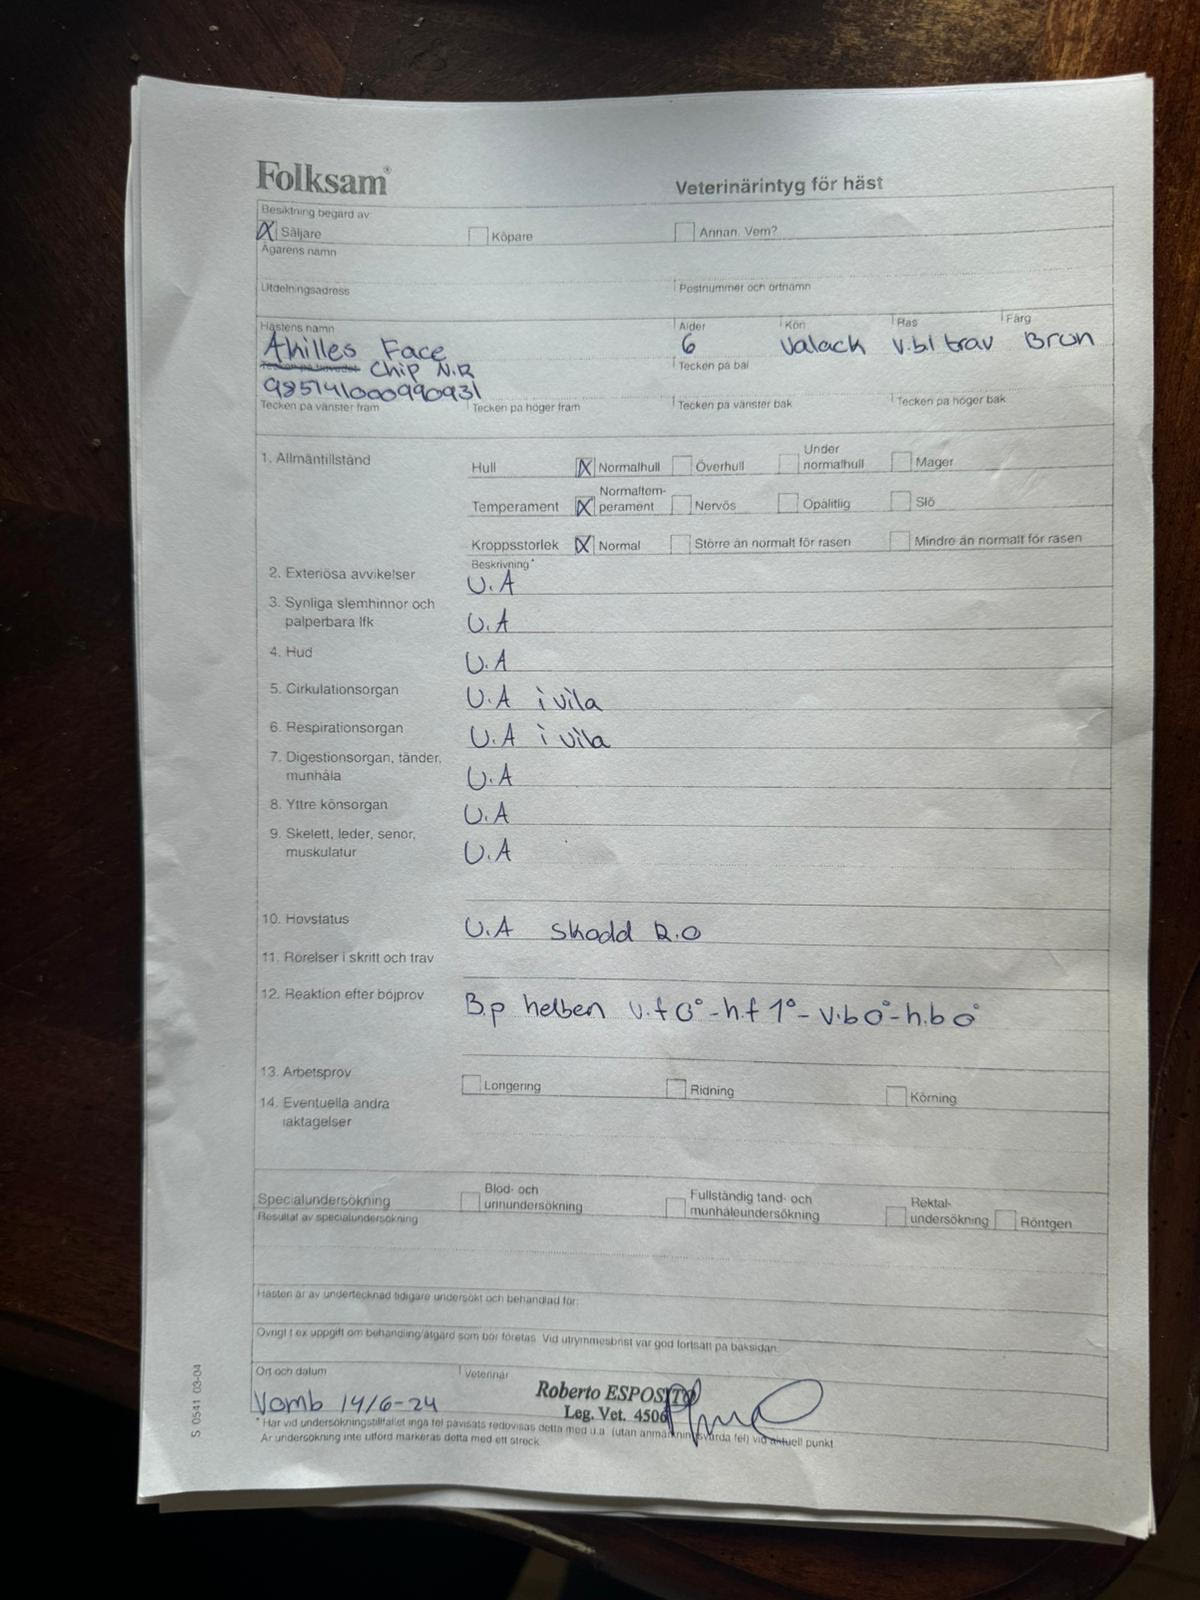 Folksam®
Veterinärintyg för häst
Besiktning begärd av:
X Säljare Köpare Annan. Vem?
Ägarens namn
Utdelningsadress Postnummer och ortnamn
Hästens namn Ålder Kön Ras Färg
Akilles Face 6 Valack v.bl trav Brun
Tecken på huvudet Chip N.R Tecken på bål
985141000990931
Tecken på vänster fram Tecken på höger fram Tecken på vänster bak Tecken på höger bak
1. Allmäntillstånd Hull X Normalhull Överhull Under normalhull Mager
Temperament X Normaltem-perament Nervös Opålitlig Slö
Kroppsstorlek X Normal Större än normalt för rasen Mindre än normalt för rasen
Beskrivning*
2. Exteriösa avvikelser U.A
3. Synliga slemhinnor och
palperbara lfk U.A
4. Hud U.A
5. Cirkulationsorgan U.A i vila
6. Respirationsorgan U.A i vila
7. Digestionsorgan, tänder,
munhåla U.A
8. Yttre könsorgan U.A
9. Skelett, leder, senor,
muskulatur U.A
10. Hovstatus U.A Skodd R.O
11. Rörelser i skritt och trav
12. Reaktion efter böjprov B.p helben v.f 0° - h.f 1° - v.b 0° - h.b 0°
13. Arbetsprov Longering Ridning Körning
14. Eventuella andra
iakttagelser
Specialundersökning Blod- och urinundersökning Fullständig tand- och munhåleundersökning Rektal-undersökning Röntgen
Resultat av specialundersökning
Hästen är av undertecknad tidigare undersökt och behandlad för:
Övrigt t ex uppgift om behandling/åtgärd som bör företas. Vid utrymmesbrist var god fortsätt på baksidan.
Ort och datum Veterinär
Vomb 14/6-24 Roberto ESPOSITO
Leg. Vet. 4506
* Har vid undersökningstillfället inga fel påvisats redovisas detta med u.a. (utan anmärkningsvärda fel) vid aktuell punkt
Är undersökning inte utförd markeras detta med ett streck.
S 0541 03-04